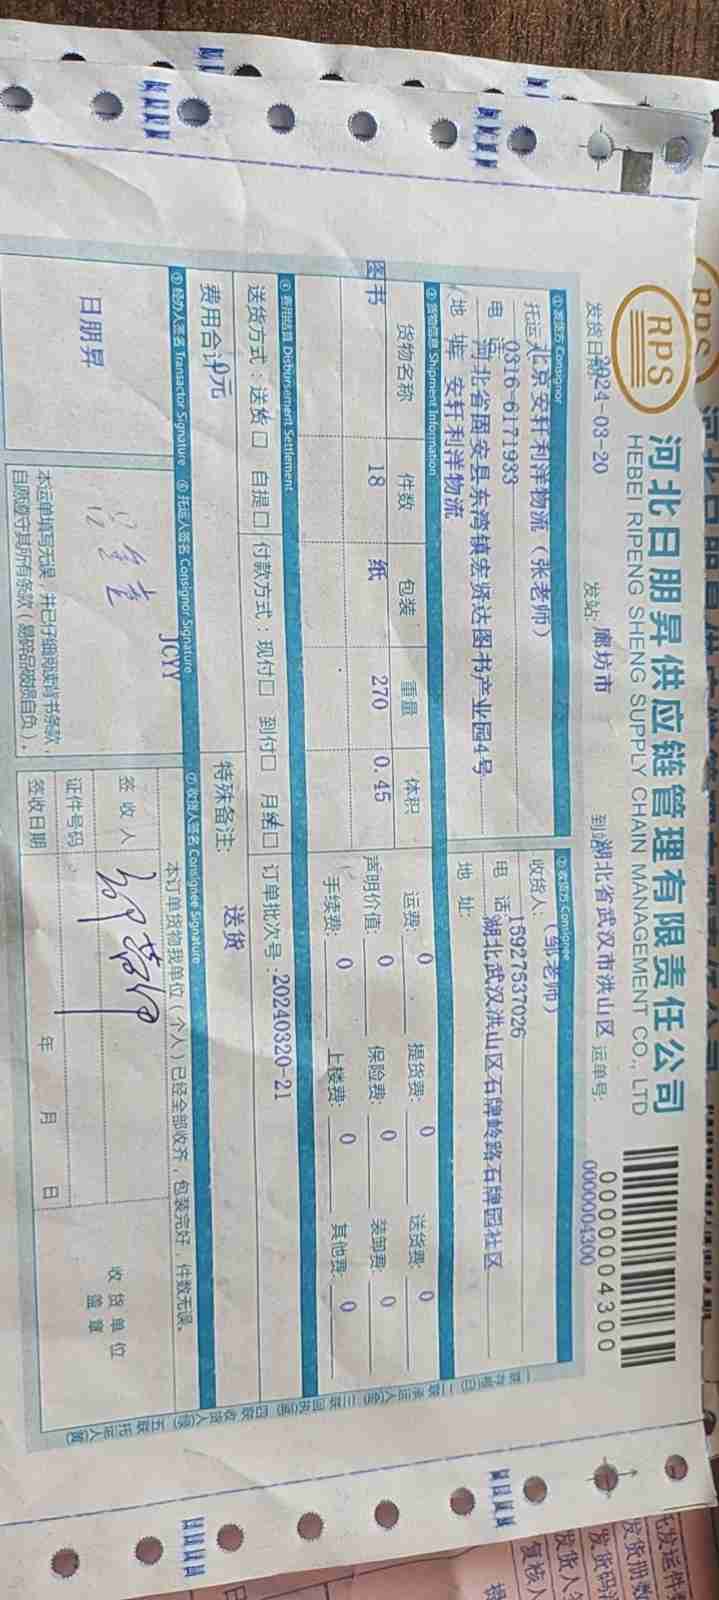 RPS
河北日朋昇供应链管理有限责任公司
HEBEI RIPENG SHENG SUPPLY CHAIN MANAGEMENT CO., LTD
0000004300
发货日期 2024-03-20 发站: 廊坊市 到站 湖北省武汉市洪山区 运单号: 0000004300
① 发货方 Consignor
托运人 北京安轩利洋物流（张老师）
电 话 0316-6171933
地 址 河北省固安县东湾镇宏贤达图书产业园4号
安轩利洋物流
② 收货方 Consignee
收货人: （邹老师）
电 话 15927537026
地 址: 湖北武汉洪山区石牌岭路石牌园社区
③ 货物信息 Shipment Information
货物名称 件数 包装 重量 体积
图书 18 纸 270 0.45
运费: 0 提货费: 0 送货费: 0
声明价值: 0 保险费: 0 装卸费: 0
手续费: 0 上楼费: 0 其他费: 0
④ 费用结算 Disbursement Settlement
送货方式: 送货□ 自提□ 付款方式: 现付□ 到付□ 月结□ 订单批次号: 20240320-21
费用合计 0元 特殊备注: 送货
⑤ 经办人签名 Transactor Signature
日朋昇
⑥ 托运人签名 Consignor Signature
JCYY
本运单填写无误，并已仔细阅读背书条款，
自愿遵守其所有条款（易碎品破损自负）。
⑦ 收货人签名 Consignee Signature
本订单货物我单位（个人）已经全部收齐，包装完好，件数无误。
签 收 人
证件号码
签收日期 年 月 日
收 货 单 位
盖 章